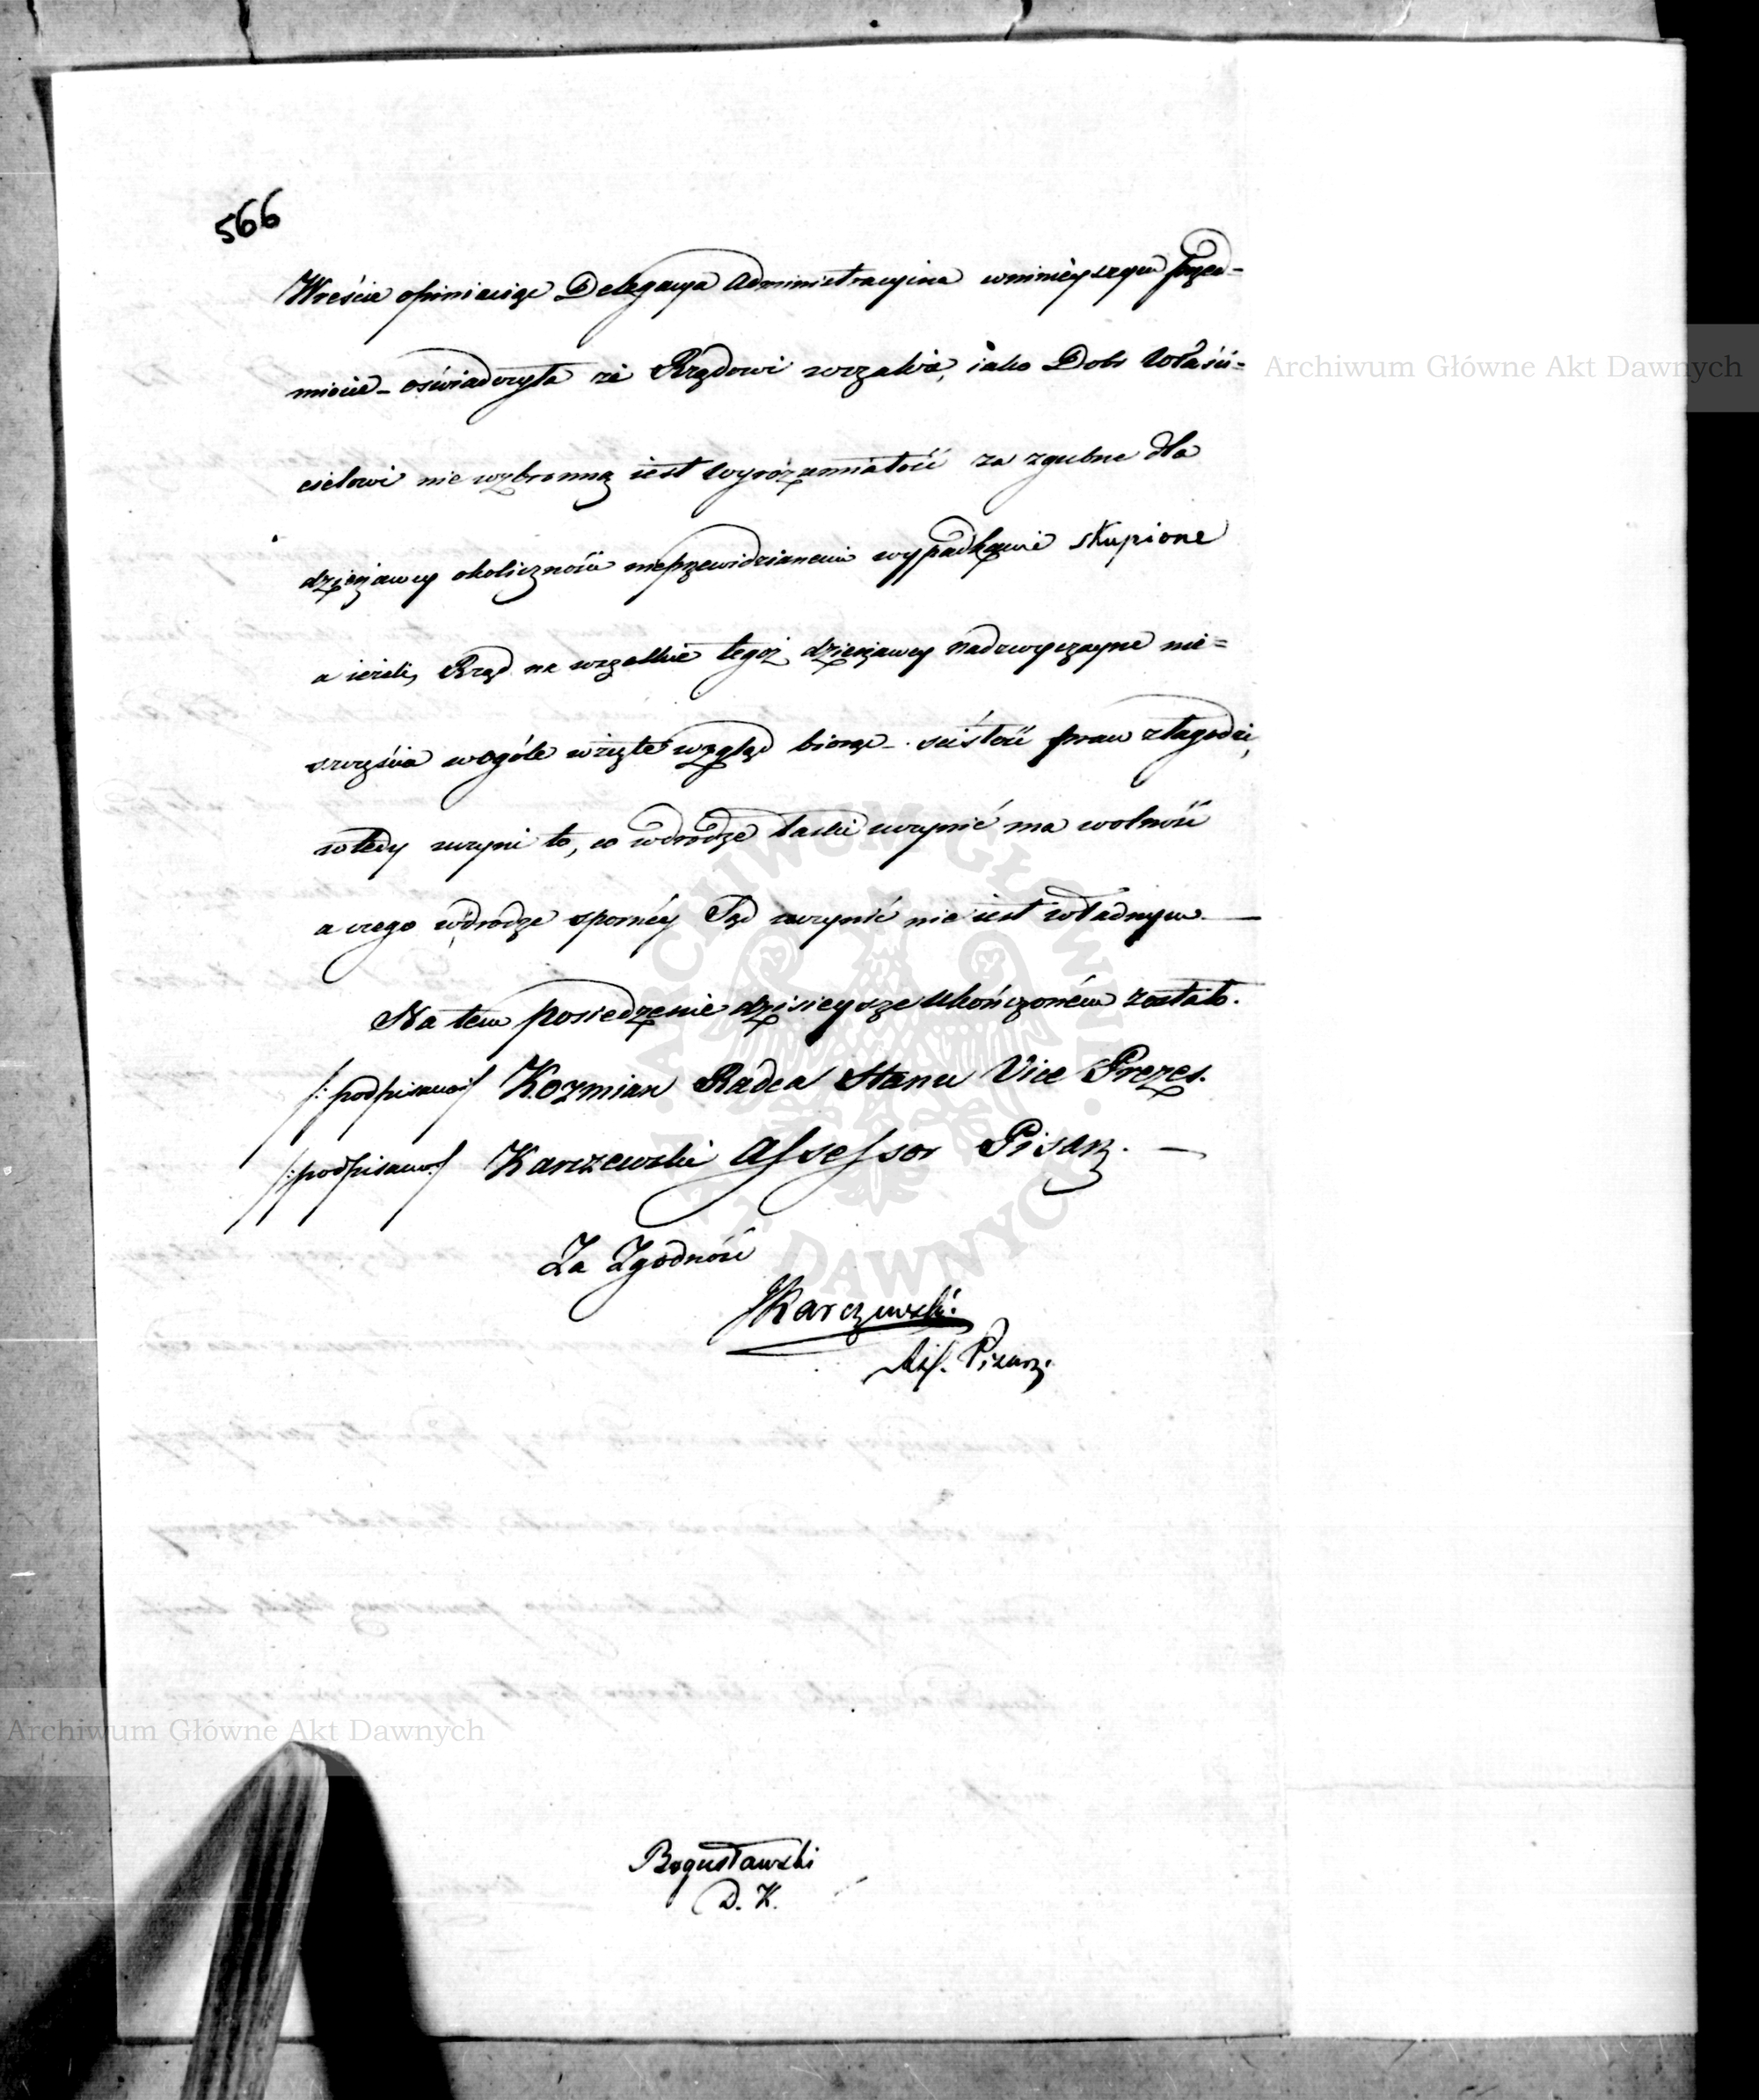 566
Wreście opiniuiąc Delegacya Administracyina wninieyszym przed-
miocie – oświadczyła że Rządowi wszakże, iako Dobr Właści-
cielowi nie wzbronną iest wyrozumiałość za zgubne dla
dzierżawcy okoliczności nieprzewidzianemi wypadkami skupione
a ieżeli, Rząd na wszelkie tegoż dzierżawcy nadzwyczayne nie=
szczęścia wogóle wzięte wzgląd biorąc – ścisłość praw złagodzi,
wtedy uczyni to, co wdrodze łaski uczynić ma wolność
a czego wdrodze sporney Sąd uczynić nie iest władnym. —
Na tem posiedzenie dzisieysze ukończonem zostało.
/: podpisano :/ Kozmian Radca Stanu Vice Prezes.
/: podpisano :/ Karczewski Assessor Pisarz. —
Za Zgodność
JKarczewski.
Ass. Pisarz.
Bogusławski
D. K.
Archiwum Główne Akt Dawnych
Archiwum Główne Akt Dawnych
ARCHIWUM GŁÓWNE AKT DAWNYCH